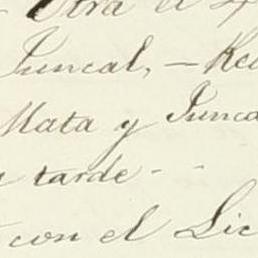 Otra el
Juncal, – Re
Mata y Junca
tarde - -
con el Lic